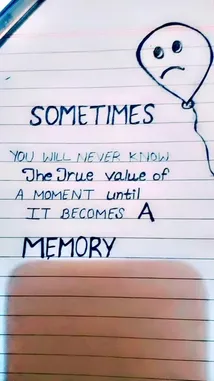 SOMETIMES
YOU WILL NEVER KNOW
The True value of
A MOMENT until
IT BECOMES A
MEMORY